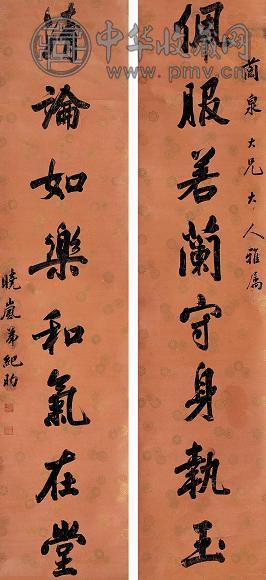 中华收藏网
www.pmv.cn
泉大兄大人雅屬
佩服若蘭守身執玉
論如樂和氣在堂
曉嵐弟紀昀